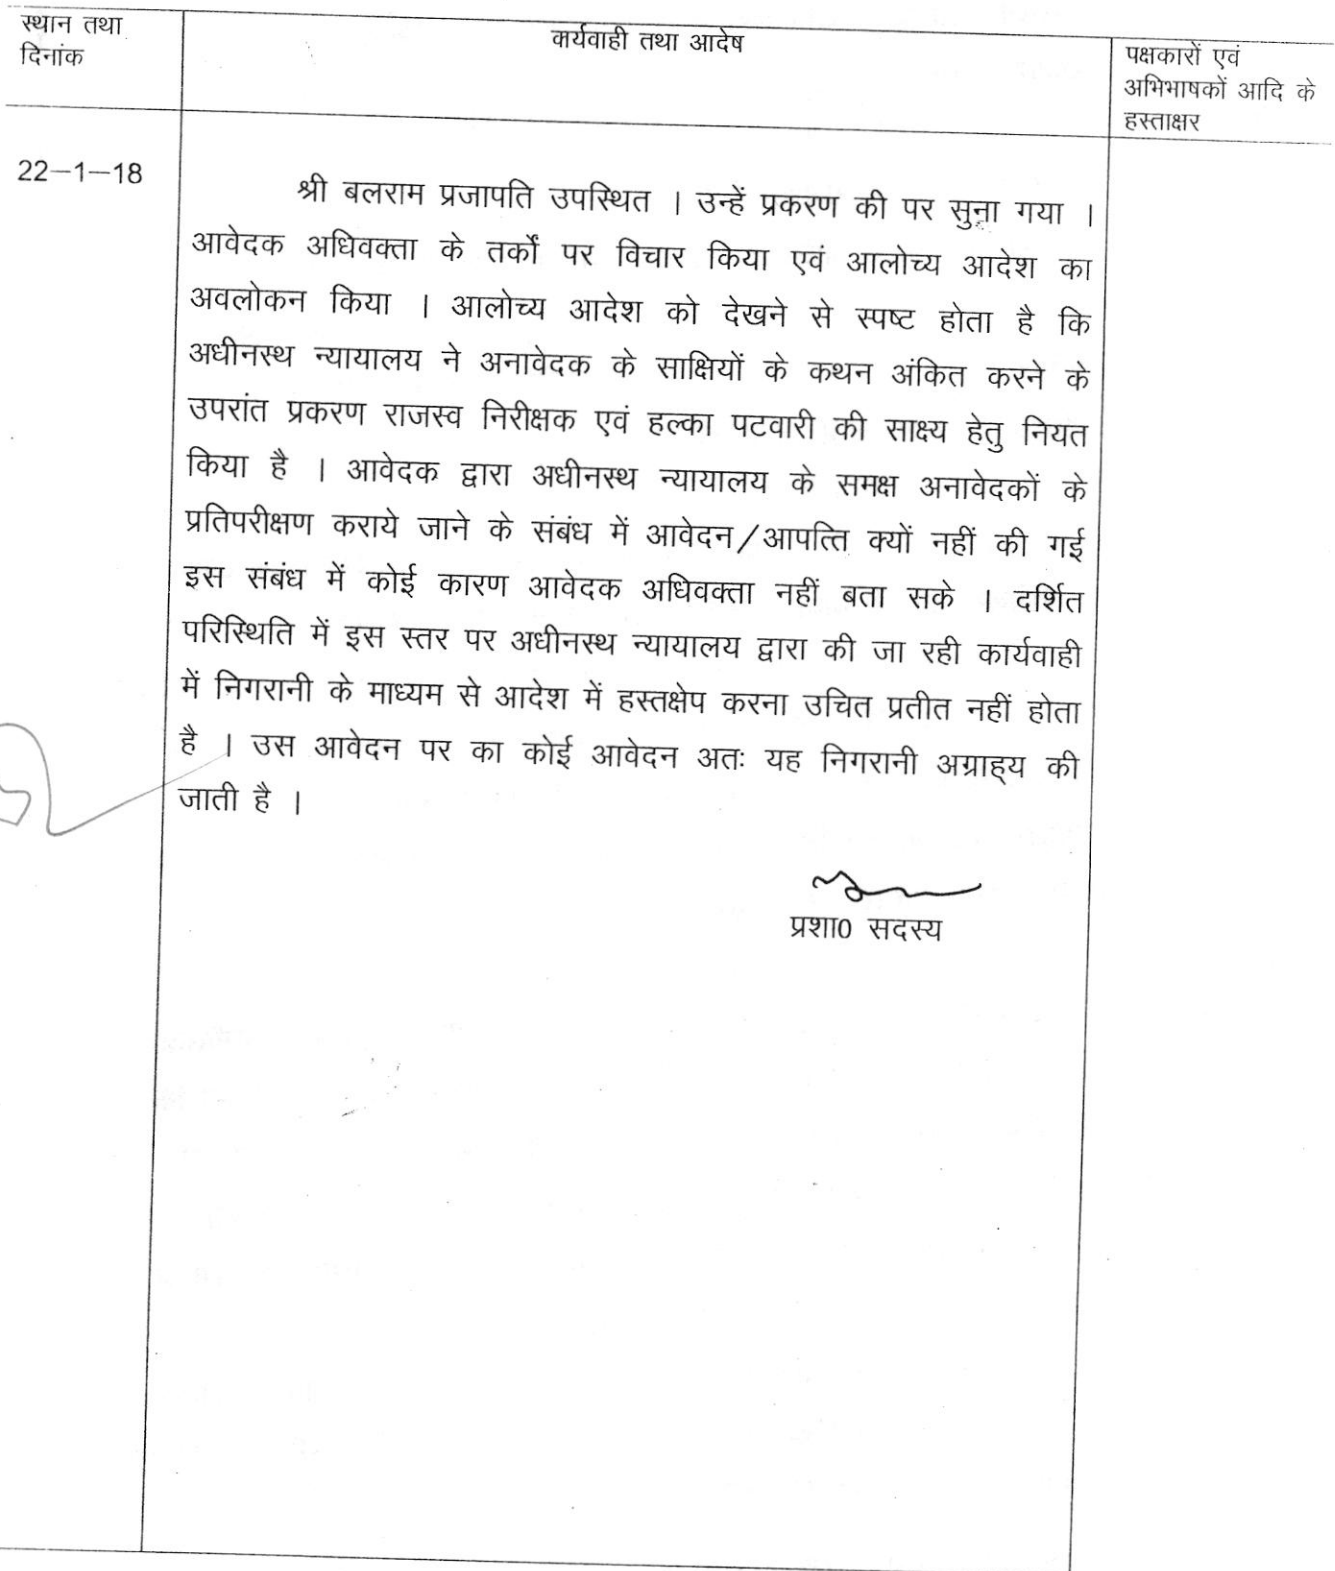 स्थान तथा
दिनांक
कार्यवाही तथा आदेष
पक्षकारों एवं
अभिभाषकों आदि के
हस्ताक्षर
22–1–18
श्री बलराम प्रजापति उपस्थित । उन्हें प्रकरण की पर सुना गया ।
आवेदक अधिवक्ता के तर्कों पर विचार किया एवं आलोच्य आदेश का
अवलोकन किया । आलोच्य आदेश को देखने से स्पष्ट होता है कि
अधीनस्थ न्यायालय ने अनावेदक के साक्षियों के कथन अंकित करने के
उपरांत प्रकरण राजस्व निरीक्षक एवं हल्का पटवारी की साक्ष्य हेतु नियत
किया है । आवेदक द्वारा अधीनस्थ न्यायालय के समक्ष अनावेदकों के
प्रतिपरीक्षण कराये जाने के संबंध में आवेदन/आपत्ति क्यों नहीं की गई
इस संबंध में कोई कारण आवेदक अधिवक्ता नहीं बता सके । दर्शित
परिस्थिति में इस स्तर पर अधीनस्थ न्यायालय द्वारा की जा रही कार्यवाही
में निगरानी के माध्यम से आदेश में हस्तक्षेप करना उचित प्रतीत नहीं होता
है । उस आवेदन पर का कोई आवेदन अतः यह निगरानी अग्राह्य की
जाती है ।
प्रशा0 सदस्य